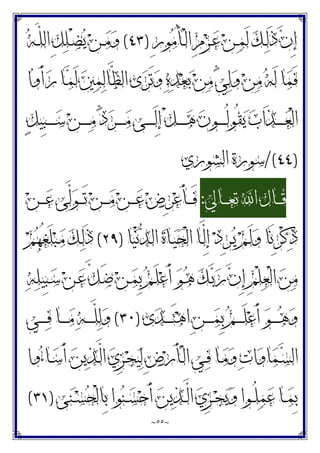 إِنَّ ذَٰلِكَ لَمِنْ عَزْمِ ٱلْأُمُورِ (٤٣) وَمَن يُضْلِلِ ٱللَّهُ
فَمَا لَهُۥ مِن وَلِىٍّ مِّنۢ بَعْدِهِۦ وَتَرَى ٱلظَّٰلِمِينَ لَمَّا رَأَوُا۟
ٱلْعَذَابَ يَقُولُونَ هَلْ إِلَىٰ مَرَدٍّ مِّن سَبِيلٍ
(٤٤)/سورة الشورى
قَالَ اللهُ تعالى: فَأَعْرِضْ عَن مَّن تَوَلَّىٰ عَن
ذِكْرِنَا وَلَمْ يُرِدْ إِلَّا ٱلْحَيَوٰةَ ٱلدُّنْيَا (٢٩) ذَٰلِكَ مَبْلَغُهُم
مِّنَ ٱلْعِلْمِ إِنَّ رَبَّكَ هُوَ أَعْلَمُ بِمَن ضَلَّ عَن سَبِيلِهِۦ
وَهُوَ أَعْلَمُ بِمَنِ ٱهْتَدَىٰ (٣٠) وَلِلَّهِ مَا فِى
ٱلسَّمَٰوَٰتِ وَمَا فِى ٱلْأَرْضِ لِيَجْزِىَ ٱلَّذِينَ أَسَٰٓـُٔوا۟
بِمَا عَمِلُوا۟ وَيَجْزِىَ ٱلَّذِينَ أَحْسَنُوا۟ بِٱلْحُسْنَى (٣١)
~٥٥~